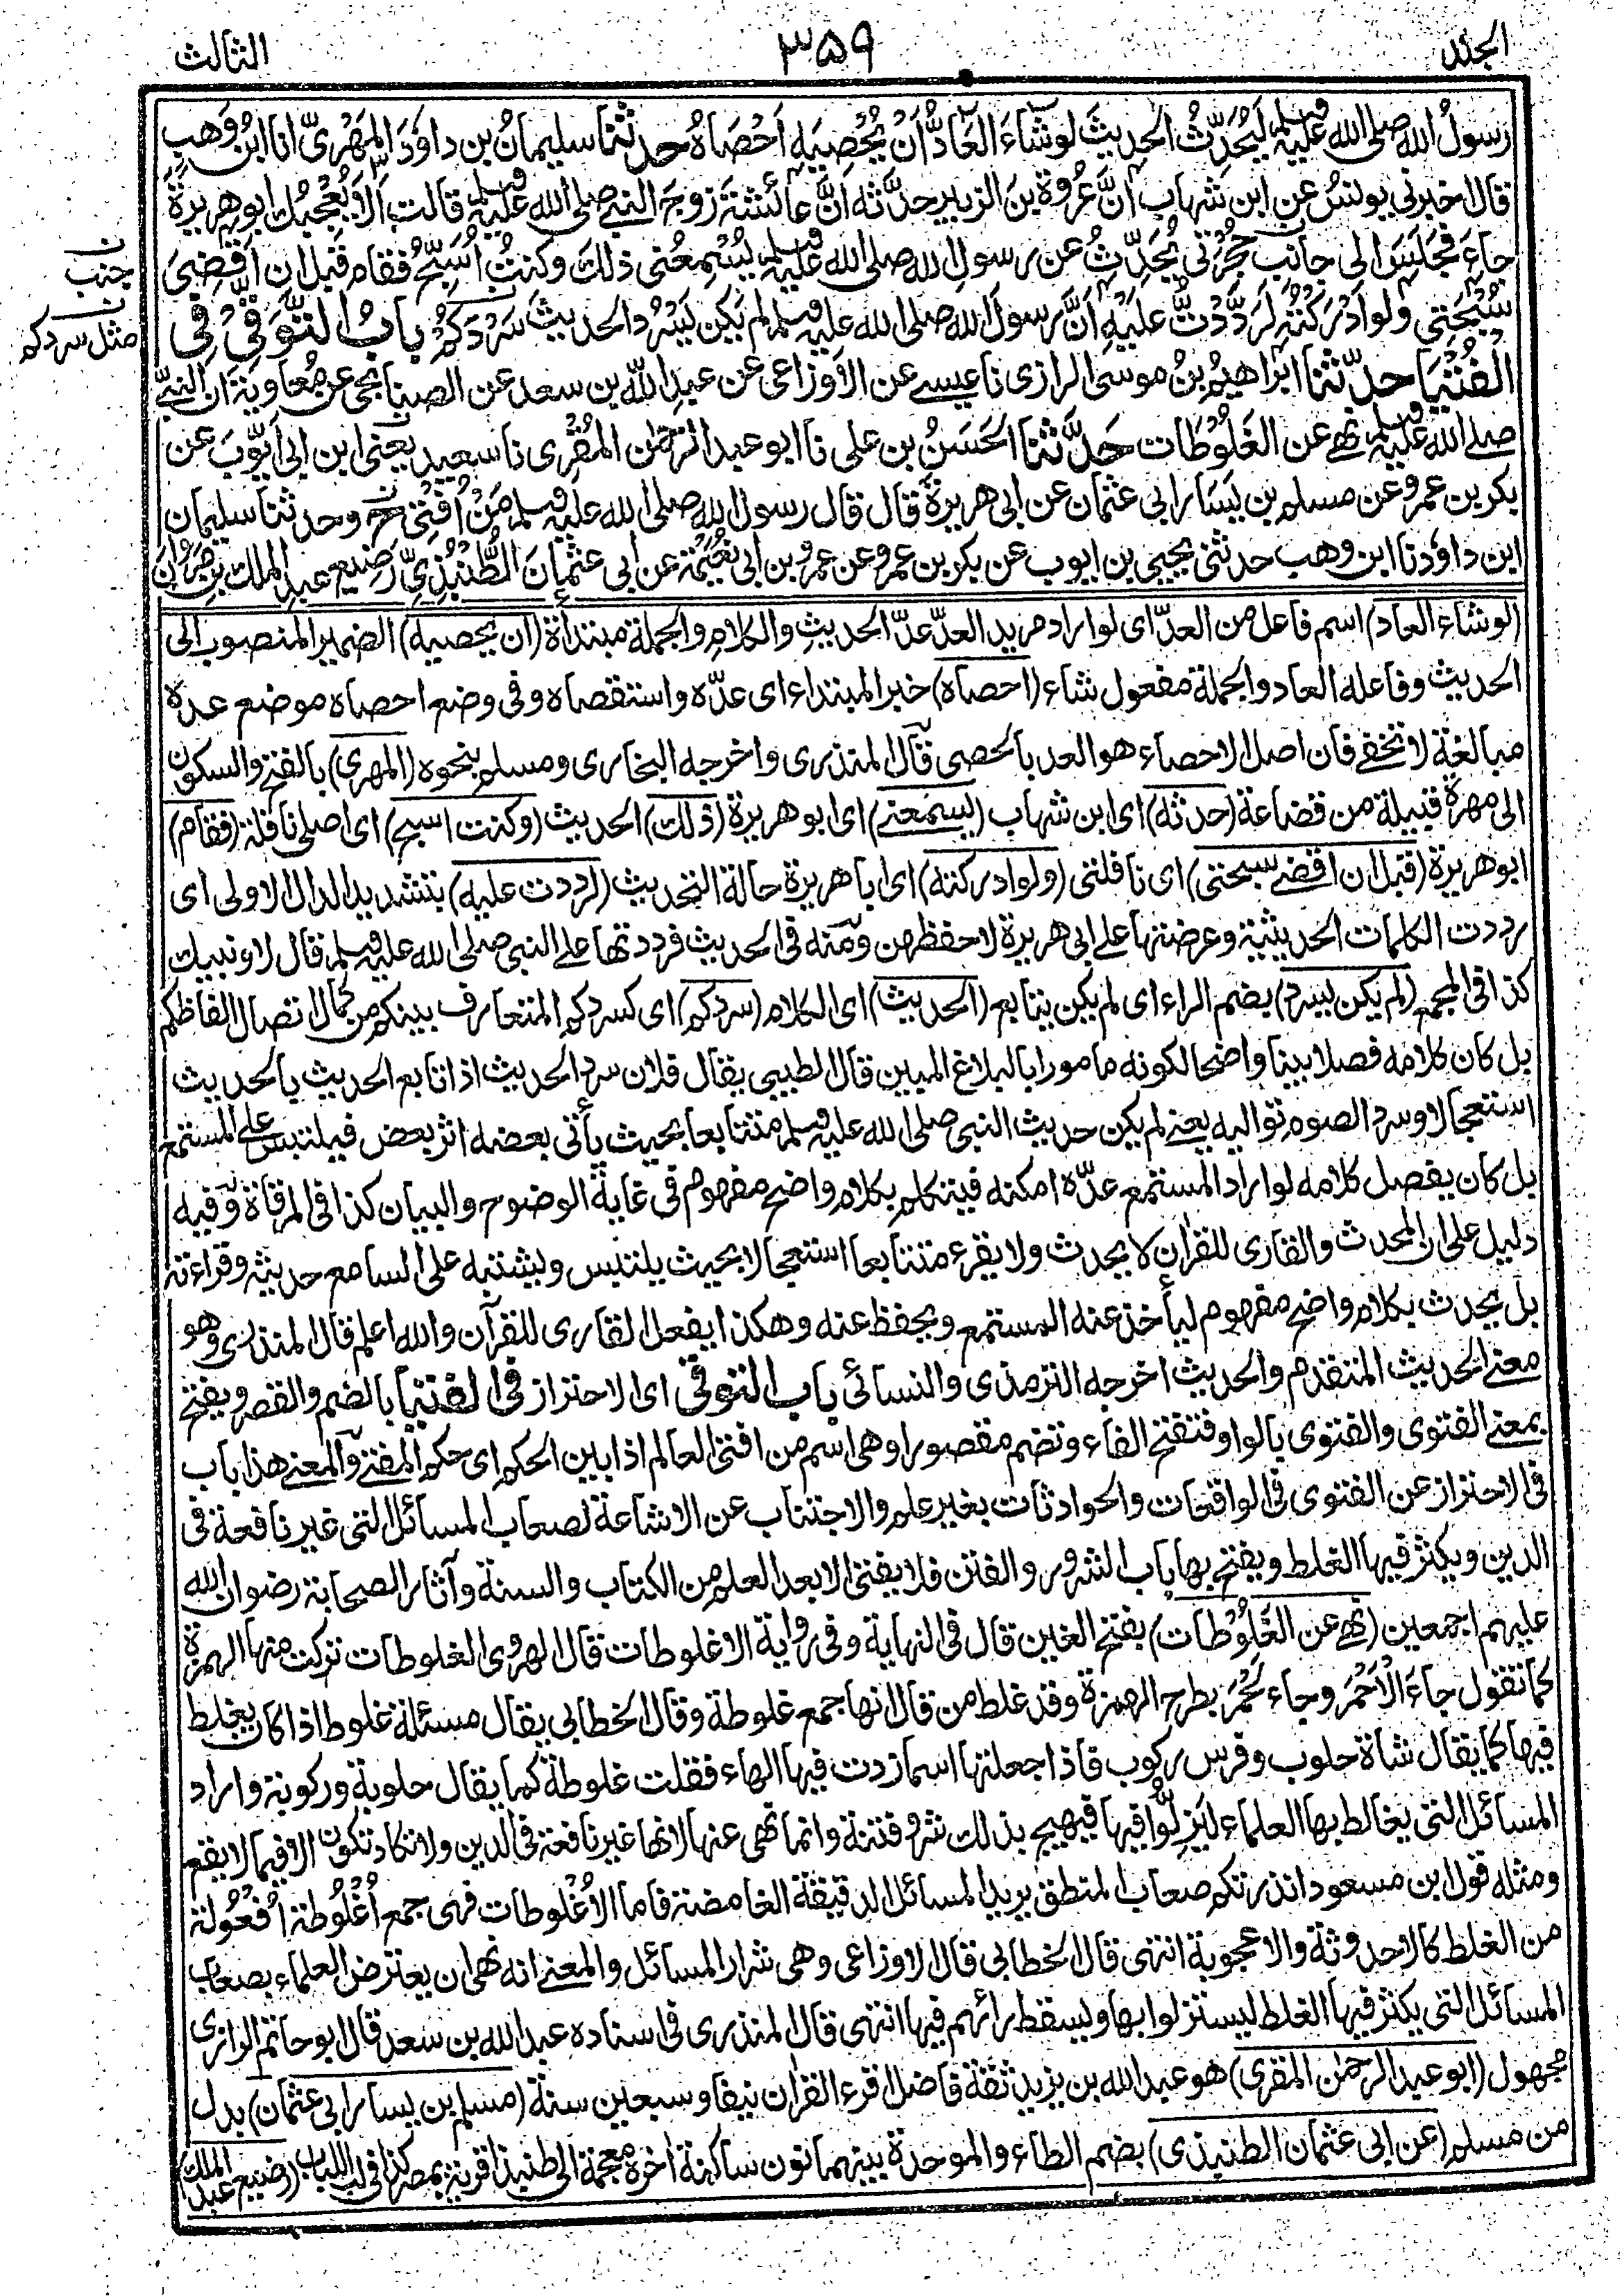 الجلد
۳۵۹
الثالث
رسولُ الله صلى الله عليه وسلم لَيُحَدِّثُ الحديثَ لوشَاءَ العَادُّ أَنْ يُحْصِيَه أَحْصَاهُ حدثنا سليمانُ بن داوٗدَ المَهْرِىّ انا ابنُ وَهبٍ
قال اخبرنى يونسُ عن ابن شهاب انَّ عُروةَ بنَ الزبير حدَّثه انَّ عائشةَ زوجَ النبى صلى الله عليه وسلم قالت اَلَا يُعْجِبُك ابوهريرةَ
جاءَ فجَلَسَ الى جانب حُجْرَتى يُحَدِّثُ عن رسولِ الله صلى الله عليه وسلم يُسْمِعُنى ذلك وكنتُ اُسَبِّحُ فقام قبل ان اَقْضِىَ
سُبْحَتِى ولو اَدْرَكْتُه لرَدَّدْتُ عليْهِ اَنَّ رسولَ الله صلى الله عليه وسلم لم يَكن يَسْرُد الحديثَ سَرْدَكُمْ بابُ التَّوَقِّىْ فِى
جنب
مثل سردكم
الفُتْيَا حدّثنا ابراهيمُ بنُ موسى الرازى نا عيسے عن الاَوزاعى عن عبدِ اللّٰه بن سعد عن الصنابحى عن مُعاويةَ ان النبىّ
صلے الله عليه وسلم نهے عن الغَلُوْطَات حَدَّثنا الحَسَنُ بن على نا ابو عبد الرحمٰن المُقْرِى نا سعيد يعنى ابن ابى اَيّوبَ عن
بكر بن عمرو عن مسلم بن يَسَار ابى عثمان عن ابى هريرة قال قال رسول الله صلى الله عليه وسلم مَنْ اُفْتِىَ ح وحدثنا سليمان
ابن داوٗد نا ابن وهب حدثنى يحيى بن ايوب عن بكر بن عمرو عن عمرو بن ابى نُعَيْمَة عن ابى عثمانَ الطُّنْبُذِىِّ رَضِيعِ عبد الملك بن مروان
(لوشاء العاد) اسم فاعل من العدّ اى لو اراد مريد العدّ عدّ الحديث والكلام والجملة مبتدأة (ان يحصيه) الضمير المنصوب الى
الحديث وفاعله العاد والجملة مفعول شاء (احصاه) خبر المبتداء اى عدّه واستقصاه وفى وضع احصاه موضع عده
مبالغة لا تخفے فان اصل الاحصاء هو العد بالحصى قال المنذرى واخرجه البخارى ومسلم بنحوه (المهرى) بالفتح والسكون
الى مهرة قبيلة من قضاعة (حدثه) اى ابن شهاب (يسمعنے) اى ابو هريرة (ذلك) الحديث (وكنت اسبح) اى اصلى نافلة (فقام)
ابوهريرة (قبل ان اقضے سبحتى) اى نافلتى (ولو ادركته) اى ابا هريرة حالة التحديث (لرددت عليه) بتشديد الدال الاولى اى
رددت الكلمات الحديثية وعرضتها على ابى هريرة لاحفظهن ومنه فى الحديث فرددتها على النبى صلى الله عليه وسلم قال لا ونبيك
كذا فى المجمع (لم يكن يسرد) بضم الراء اى لم يكن يتابع (الحديث) اى الكلام (سردكم) اى كسردكم المتعارف بينكم من كمال اتصال الفاظكم
بل كان كلامه فصلا بينا واضحا لكونه مامورا بالبلاغ المبين قال الطيبى يقال فلان سرد الحديث اذا تابع الحديث بالحديث
استعجالا وسرد الصوم تواليه يعنے لم يكن حديث النبى صلى الله عليه وسلم متتابعا بحيث يأتى بعضه اثر بعض فيلتبس على المستمع
بل كان يفصل كلامه لو اراد المستمع عدّه امكنه فيتكلم بكلام واضح مفهوم فى غاية الوضوح والبيان كذا فى المرقاة وفيه
دليل على ان المحدث والقارى للقرأن لا يحدث ولا يقرء متتابعا استعجالا بحيث يلتبس ويشتبه على السامع حديثه وقراءته
بل يحدث بكلام واضح مفهوم ليأخذ عنه المستمع ويحفظ عنه وهكذا يفعل القارى للقرآن والله اعلم قال المنذرى وهو
معنے الحديث المتقدم والحديث اخرجه الترمذى والنسائى باب التوقى اى الاحتراز فى الفتيا بالضم والقصر ويفتح
بمعنے الفتوى والفتوى بالواو فتفتح الفاء وتضم مقصورا وهى اسم من افتى العالم اذا بين الحكم اى حكم المفتے والمعنے هذا باب
فى الاحتراز عن الفتوى فى الواقعات والحوادثات بغير علم والاجتناب عن الاشاعة لصعاب المسائل التى غير نافعة فى
الدين ويكثر فيها الغلط ويفتح بها باب الشرور والفتن فلا يفتى الا بعد العلم من الكتاب والسنة وآثار الصحابة رضوان الله
عليهم اجمعين (نهے عن الغَلُوْطَات) بفتح الغين قال فى النهاية وفى رواية الاغلوطات قال الهروى الغلوطات تركت منها الهمزة
كما تقول جاءَ الْاَحْمَرُ وجاء لَحْمَرُ بطرح الهمزة وقد غلط من قال انها جمع غلوطة وقال الخطابى يقال مسئلة غلوط اذا كان يغلط
فيها كما يقال شاة حلوب وفرس ركوب فاذا جعلتها اسما زدت فيها الهاء فقلت غلوطة كما يقال حلوبة وركوبة واراد
المسائل التى يغالط بها العلماء لِيَزِلُّوا فيها فيهيج بذلك شر وفتنة وانما نهى عنها لانها غير نافعة فى الدين ولا تكاد تكون الا فيما لا يقع
ومثله قول ابن مسعود انذرتكم صعاب المنطق يريد المسائل الدقيقة الغامضة فاما الاُغْلوطات فهى جمع اُغْلُوْطَة اُفْعُوْلة
من الغلط كالاحدوثة والاعجوبة انتهى قال الخطابى قال الاوزاعى وهى شرار المسائل والمعنے انه نهى ان يعترض العلماء بصعاب
المسائل التى يكثر فيها الغلط ليستزلوا بها ويسقط رائهم فيها انتهى قال المنذرى فى اسناده عبد الله بن سعد قال ابو حاتم الرازى
مجهول (ابو عبد الرحمٰن المقرى) هو عبد الله بن يزيد ثقة فاضل اقرء القرأن نيفا وسبعين سنة (مسلم بن يسار ابى عثمان) بدل
من مسلم (عن ابى عثمان الطنبذى) بضم الطاء والموحدة بينهما نون ساكنة أخره معجمة الى طنبذا قرية بمصر كذا فى لب اللباب (رضيع عبد الملك)